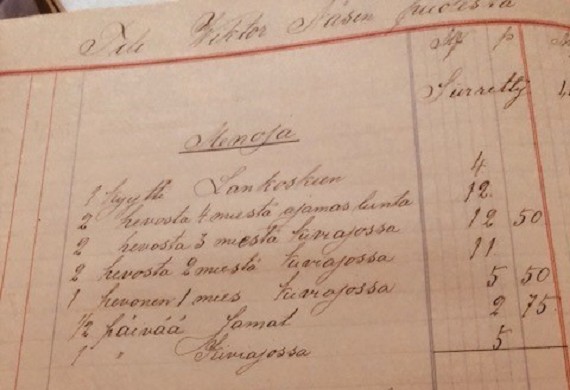 Tili Viktor Åsen puolesta
Mk p
Siirretty 4
Menoja
1 kyyti Lankoskeen 4
2 hevosta 4 miestä ajamas lunta 12
2 hevosta 3 miestä kiviajossa 12 50
2 hevosta 2 miestä kiviajossa 11
1 hevonen 1 mies kiviajossa 5 50
1/2 päivää Samat 2 75
1 " Kiviajossa 5